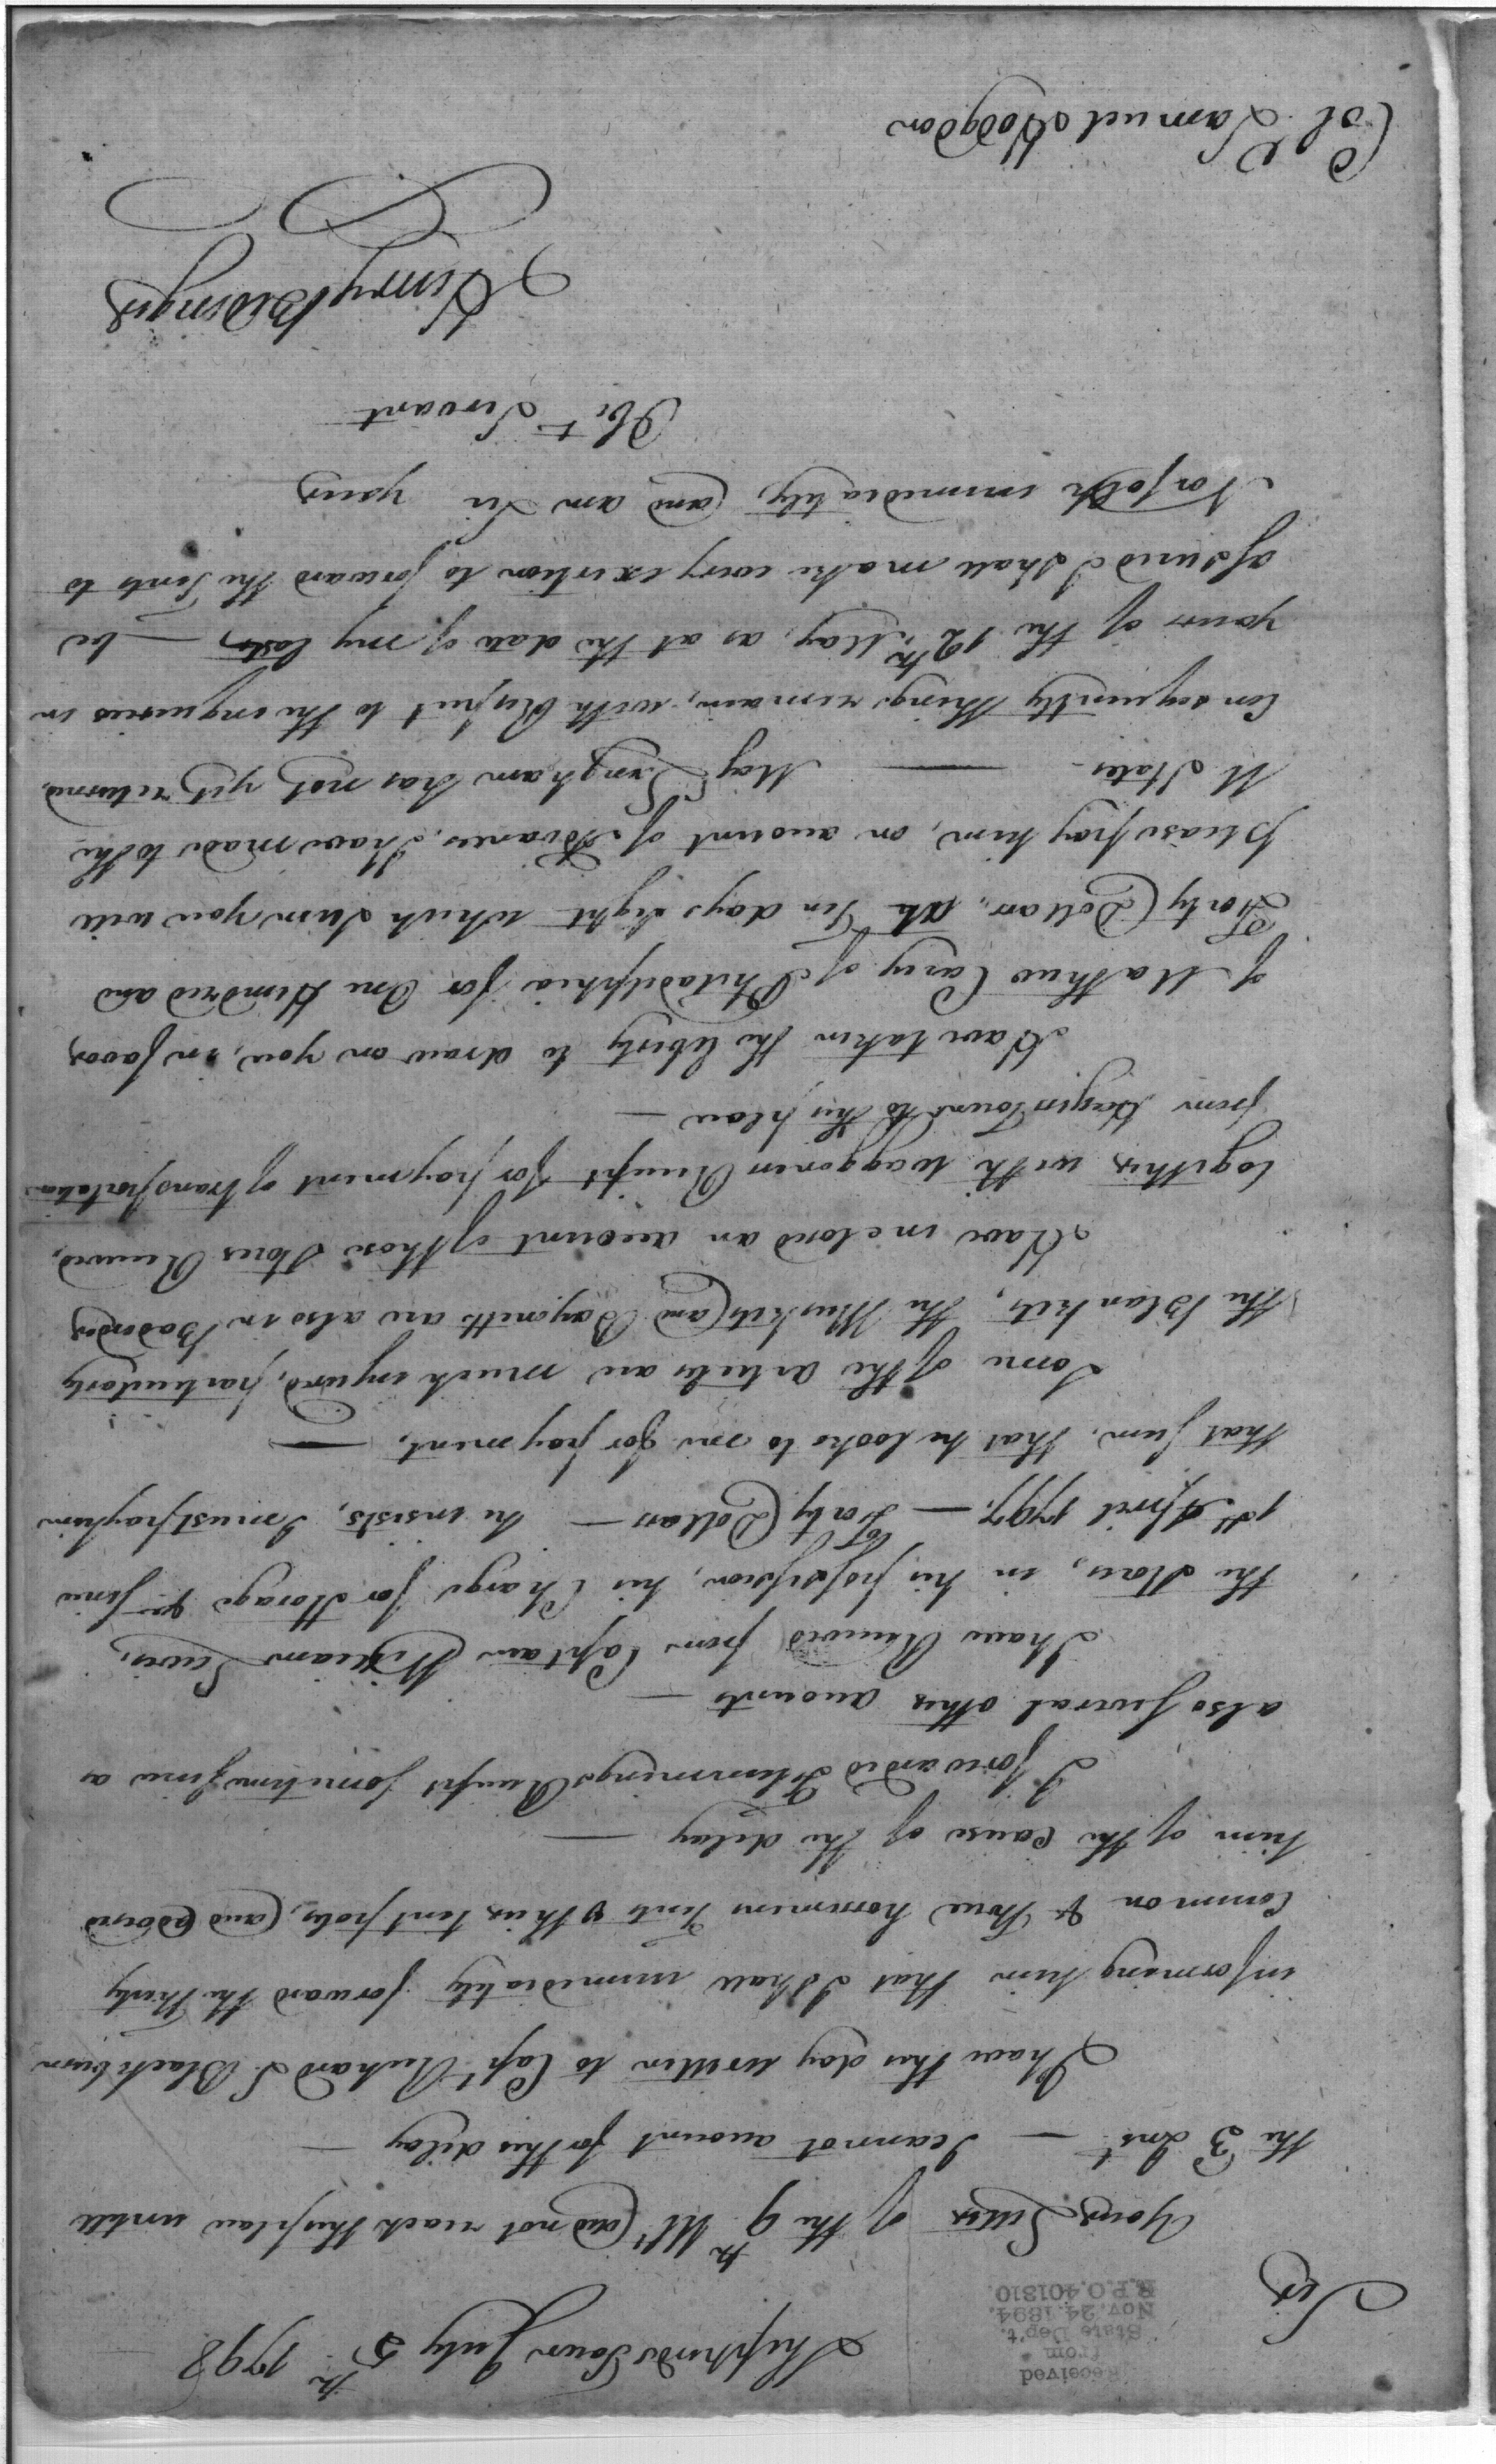 Shepherds Town July 5th 1798
Received
from
State Dep't.
Nov. 24. 1894.
R.P.O. 401810.
Sir
Your Letter of the 9th Ult did not reach this place untill
the 3 Inst — I cannot account for this delay —
I have this day written to Capt Richard S. Blackburn
informing him that I shall immediately forward the Thirty
Common & three horsemens Tents & their tent poles, and advised
him of the Cause of the delay —
I forwarded Flemmings Receipt sometime since as
also several other accounts —
I have Received from Captain William Lewis,
the Stores, in his possession, his Charge for Storage is since
1st April 1797. — Forty Dollars — he insists, I must pay him
that sum. that he looks to me for payment. —
Some of the articles are much injured, particularly
the Blankets, the Muskets and Bayonetts are also in bad order
Have inclosed an account of those Stores Received,
together with waggoners Receipt for payment of transportation
from Hagers Town to this place —
Have taken the liberty to draw on you, in favor
of Mathew Carey of Philadelphia for One Hundred and
Forty Dollars, at Ten days sight which sum you will
please pay him, on account of Advances, I have made to the
U States — Maj Lingham has not yet returned.
Consequently things remain, with Respect to the enquiries in
yours of the 12th May, as at the date of my last, — be
assured I shall make every exertion to forward the Tents to
Norfolk immediately, and am Sir your
Obt Servant
Henry Bedinger
Col Samuel Hodgdon